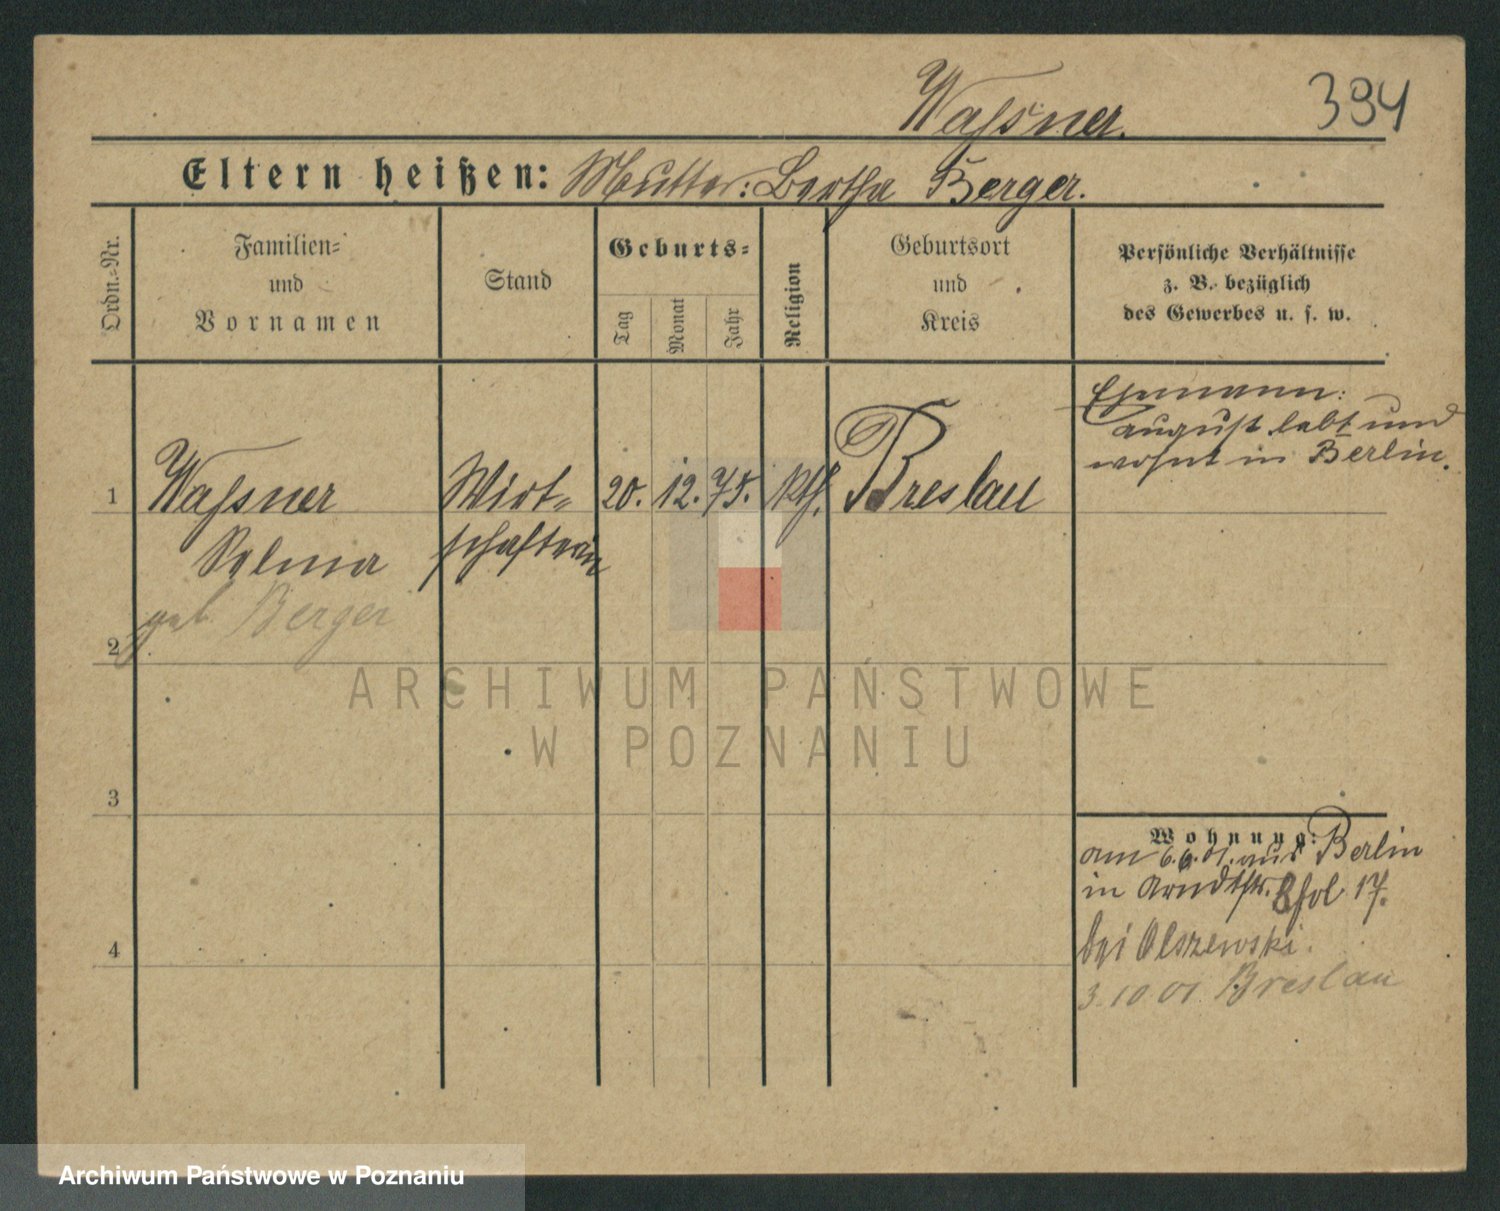 Waßner.
394
Eltern heißen: Mutter: Bertha Berger.
Ordn.=Nr.
Familien=
und
Vornamen
Stand
Geburts=
Tag
Monat
Jahr
Religion
Geburtsort
und
Kreis
Persönliche Verhältnisse
z. B. bezüglich
des Gewerbes u. s. w.
Ehemann:
august lebt und
wohnt in Berlin.
1
Waßner
Wirt=
20. 12. 75. kth. Breslau
Selma
schafterin
geb. Berger
2
ARCHIWUM PAŃSTWOWE
W POZNANIU
3
Wohnung:
am 6.6.01. aus Berlin
in Arndtstr. 17.
4
bei Olszewski.
3.10 01 Breslau
Archiwum Państwowe w Poznaniu